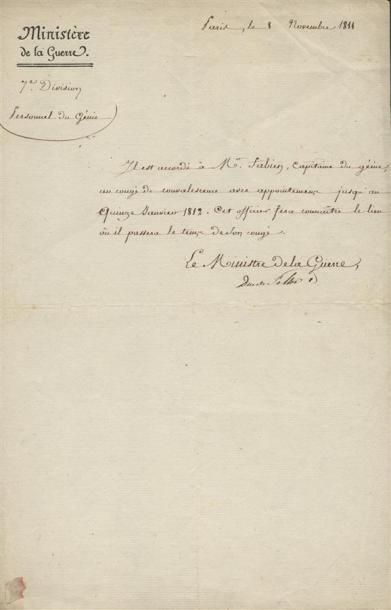 Paris, le 8 Novembre 1811
Ministère
de la Guerre.
7e. Division
Personnel du Génie
Il est accordé à Mr. Fabien, Capitaine du génie,
un congé de convalescence avec appointemens jusqu'au
Quinze Janvier 1812. Cet officier fera connaître le lieu
où il passera le tems de son congé.
Le Ministre de la Guerre,
Duc de Feltre